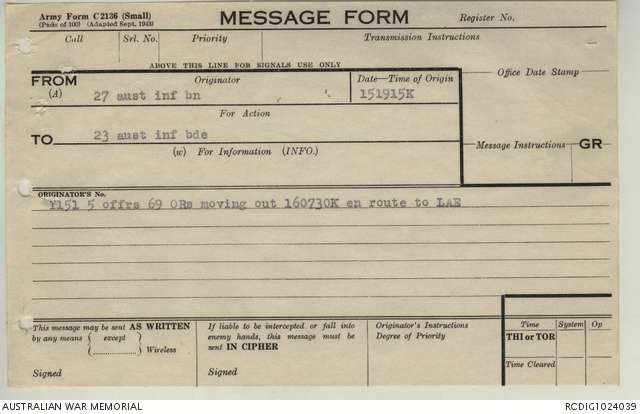 Army Form C 2136 (Small)
(Pads of 100) (Adapted Sept. 1943)
MESSAGE FORM
Register No.
Call
Srl. No.
Priority
Transmission Instructions
ABOVE THIS LINE FOR SIGNALS USE ONLY
FROM
(A)
Originator
27 aust inf bn
Date—Time of Origin
151915K
Office Date Stamp
For Action
TO
23 aust inf bde
(w) For Information (INFO.)
Message Instructions
GR
ORIGINATOR'S No.
Y151 5 offrs 69 ORs moving out 160730K en route to LAE
This message may be sent AS WRITTEN
by any means { except }
Wireless
Signed
If liable to be intercepted or fall into
enemy hands, this message must be
sent IN CIPHER
Signed
Originator's Instructions
Degree of Priority
Time
System
Op
THI or TOR
Time Cleared
AUSTRALIAN WAR MEMORIAL
RCDIG1024039